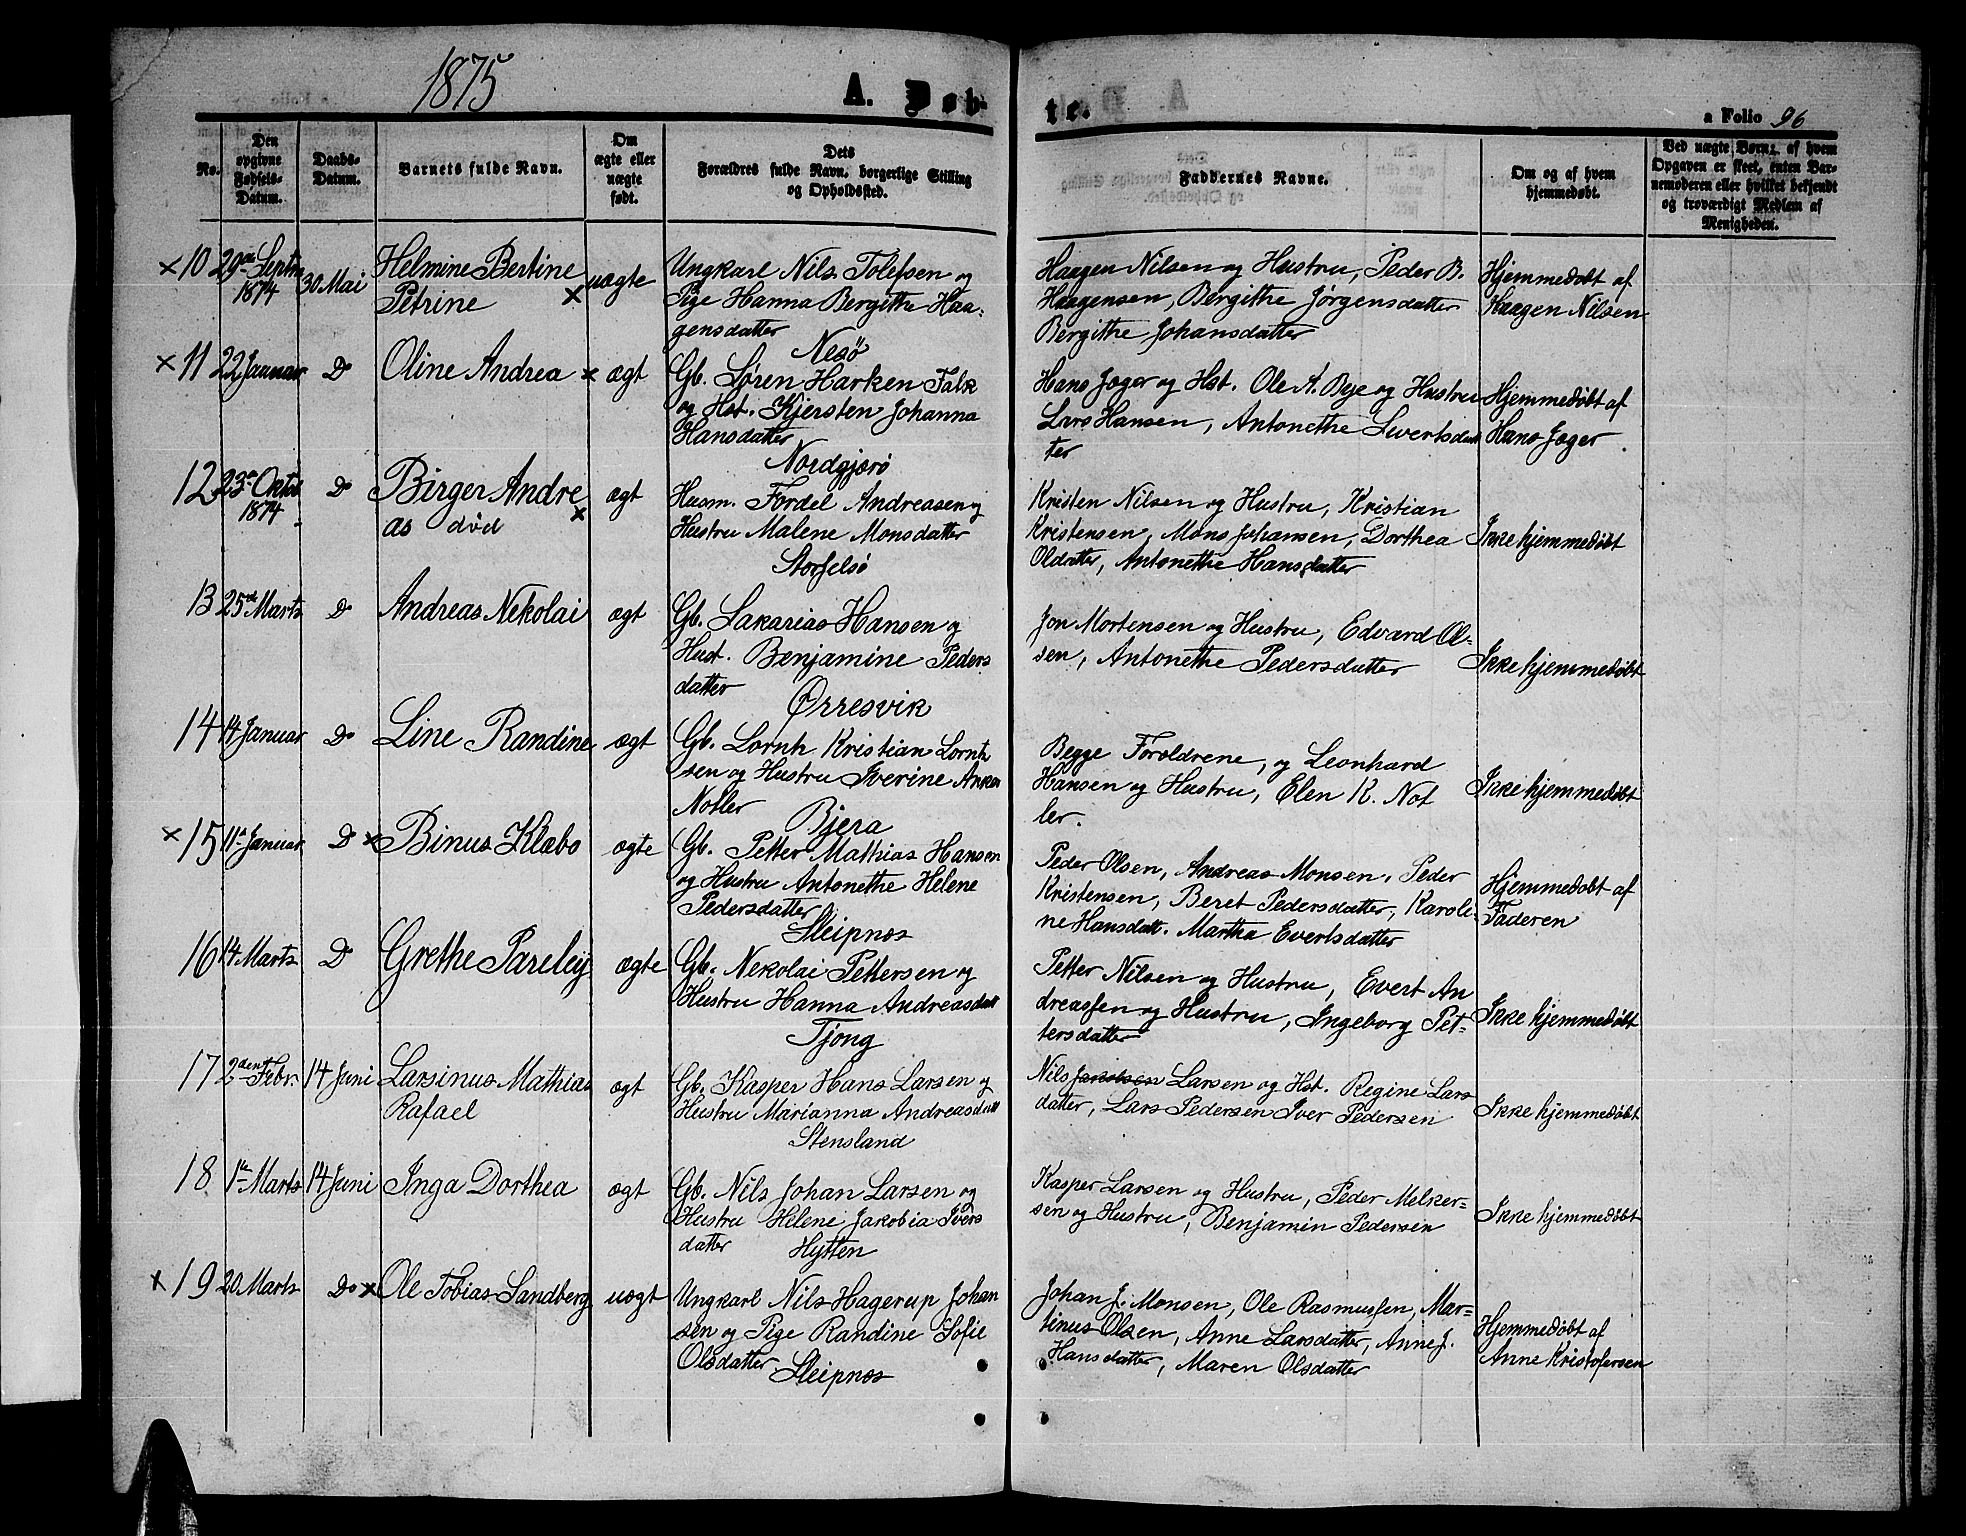 1875
A. Døb-
te.
a Folio 96
No.
Den opgivne Fødsels-Datum.
Daabs-Datum.
Barnets fulde Navn.
Om ægte eller uægte født.
Dets Forældres fulde Navn, borgerlige Stilling og Opholdssted.
Faddernes Navne.
Om og af hvem hjemmedøbt.
Ved uægte Børn: af hvem Opgaven er skeet, enten Barnemoderen eller hvilket bekjendt og troværdigt Medlem af Menigheden.
×10 29de Septm 1874 30 Mai Helmine Bertine Petrine × uægte
Ungkarl Nils Tolefsen og
Pige Hanna Bergithe Haa-
gensdatter
Nesø
Haagen Nilsen og Hustru, Peder B.
Haagensen, Bergithe Jørgensdatter
Bergithe Johansdatter
Hjemmedøbt af
Haagen Nilsen
×11 22 Januar Do Oline Andrea × ægt
Gb. Søren Harken Falk
og Hst. Kjersten Johanna
Hansdatter
Nordgjærø
Hans Jæger og Hst. Ole A. Bye og Hustru
Lars Hansen, Antonethe Sivertsdat
ter
Hjemmedøbt af
Hans Jæger.
12 23de Oktob 1874 Do Birger Andre
as død × ægt
Husm. Fordel Andreasen og
Hustru Malene Monsdatter
Storselsø
Kristen Nilsen og Hustru, Kristian
Kristensen, Mons Johansen, Dorthea
Oldatter, Antonethe Hansdatter
Ikke hjemmedøbt
13 25de Marts Do Andreas Nekolai ægt
Gb. Sakarias Hansen og
Hust. Benjamine Peders
datter
Ørresvik
Jon Mortensen og Hustru, Edvard Ol-
sen, Antonethe Pedersdatter
Ikke hjemmedøbt
14 14 Januar Do Line Randine ægt
Gb. Lornh Kristian Lornts
sen og Hustru Iverine Anna
Notler
Bjera
Begge Foroldrene, og Leonhard
Hansen og Hustru, Elen K. Not
ler.
Ikke hjemmedøbt
×15 11te Januar Do × Binus Klæbo ægte
Gb. Petter Mathias Hansen
og Hustru Antonethe Helene
Pedersdatter
Sleipnæs
Peder Olsen, Andreas Monsen, Peder
Kristensen, Beret Pedersdatter, Karoli-
ne Hansdatt. Martha Evertsdatter
Hjemmedøbt af
Faderen
16 14 Marts Do Grethe Pareley ægte
Gb. Nekolai Pettersen og
Hustru Hanna Andreasdatt
Tjong
Petter Nilsen og Hustru, Evert An
dreassen og Hustru, Ingeborg Pet-
tersdatter
Ikke hjemmedøbt
17 2den Febr. 14 Juni Larsinus Mathias
Rafael ægt
Gb. Kasper Hans Larsen og
Hustru Marianna Andreasdatt
Stensland
Nils Jakobsen Larsen og Hst. Regine Lars
datter, Lars Pedersen Iver Pedersen
Ikke hjemmedøbt
18 1te Marts 14 Juni Inga Dorthea ægt
Gb. Nils Johan Larsen og
Hustru Helene Jakobia Ivers
datter
Hytten
Kasper Larsen og Hustru, Peder Melker-
sen og Hustru, Benjamin Pedersen
Ikke hjemmedøbt
×19 20 Marts Do × Ole Tobias Sandberg uægt
Ungkarl Nils Hagerup Johan
sen og Pige Randine Sofie
Olsdatter Sleipnæs
Johan J. Monsen, Ole Rasmussen, Mar-
tinus Olsen, Anne Larsdatter, Anne J.
Hansdatter, Maren Olsdatter
Hjemmedøbt af
Anne Kristofersen